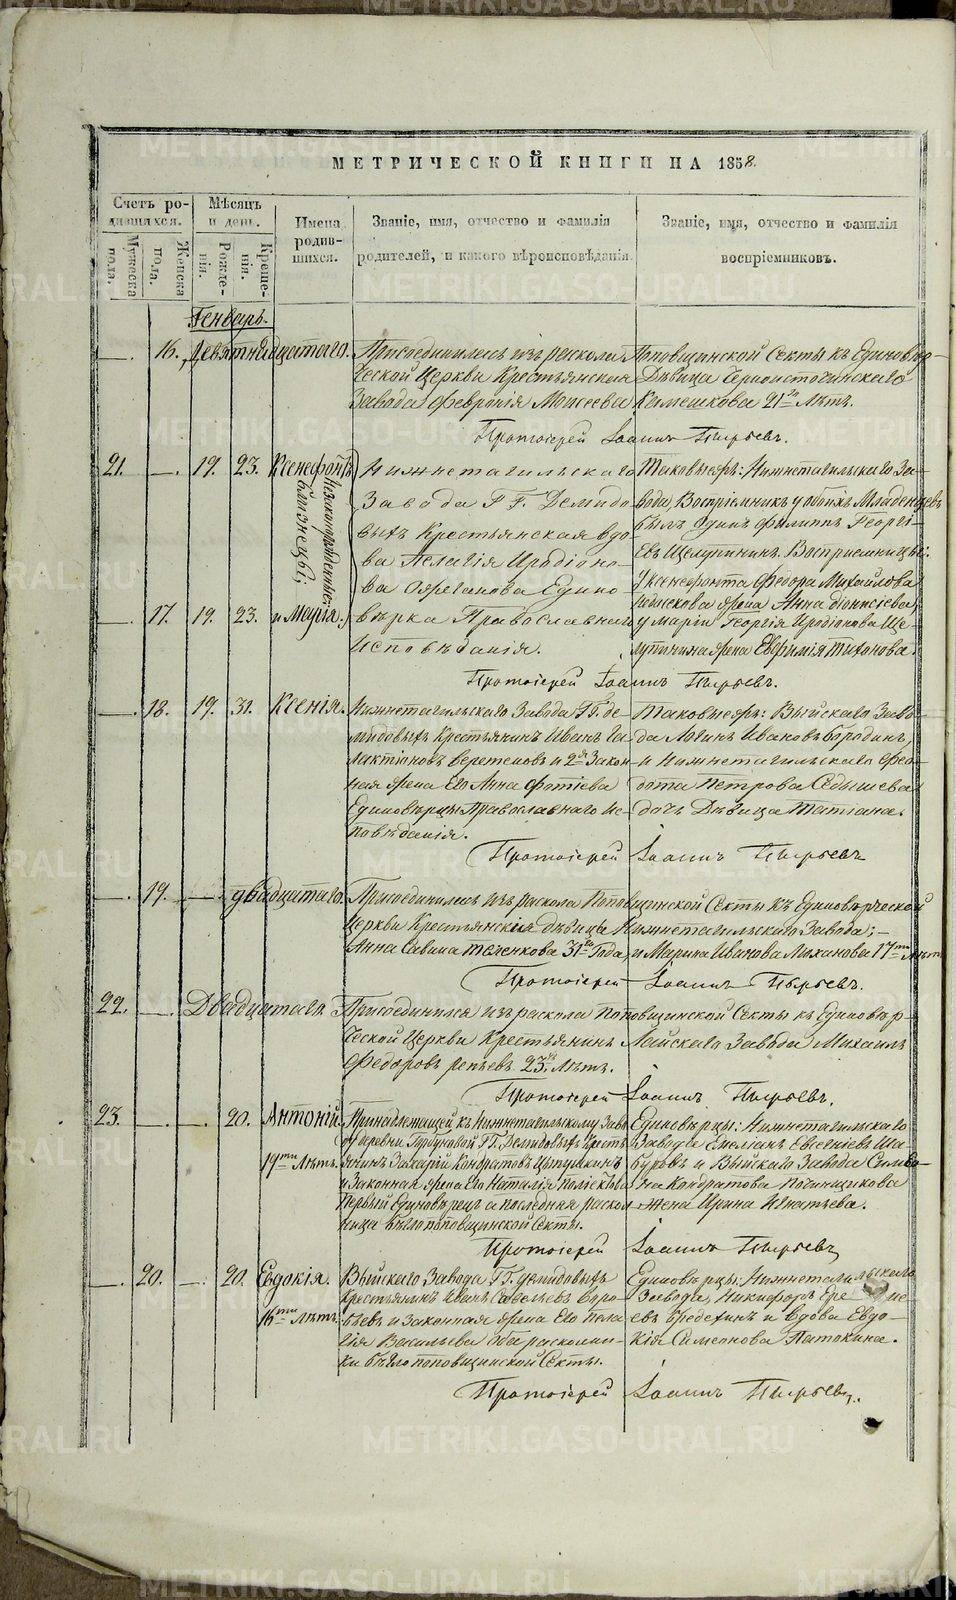 МЕТРИЧЕСКОЙ КНИГИ НА 1858.
Счетъ ро-
дившихся.
Мѣсяцъ
и день.
Имена
родив-
шихся.
Званіе, имя, отчество и фамилія
родителей, и какого вѣроисповѣданія.
Званіе, имя, отчество и фамилія
воспріемниковъ.
Мужеска
пола.
Женска
пола.
Рожде-
нія.
Креще-
нія.
Генварь.
16. Девятнадцатаго. Присоединились изъ раскола Поповщинской Секты къ Единовѣр-
ческой Церкви Крестьянская Дѣвица Черноисточинскаго
Завода Февронія Моисеева Камешкова 21 Лѣтъ.
Протоіерей Іоаннъ Пырьевъ.
21. 19. 23. Ксенефонтъ
Незаконнорожденные
близнецы;
17. 19. 23. и Марія.
Нижнетагильскаго
Завода Г.Г. Демидо
выхъ Крестьянская вдо
ва Пелагія Иродіоно-
ва Едино
вѣрка Православнаго
Исповѣданія.
Таковыежъ: Нижнетагильскаго За-
вода, Воспріемникъ у обоихъ Младенцевъ
былъ Одинъ Филиппъ Георгі-
евъ Щелупининъ. Воспріемницы:
у Ксенефонта Федора Михайлова
жена Анна Діонисіева,
у Маріи Георгія Иродіонова Ще-
лупинина жена Евфимія Тихонова.
Протоіерей Іоаннъ Пырьевъ.
18. 19. 31. Ксенія.
Нижнетагильскаго Завода Г.Г. Де-
мидовыхъ Крестьянинъ Иванъ Га
лактіоновъ Веретеновъ и 2я Закон-
ная жена Его Анна Фотіева
Единовѣрцы Православнаго Ис-
повѣданія.
Таковыежъ: Выйскаго Заво-
да Логинъ Ивановъ Бородинъ,
и Нижнетагильскаго Фео-
дота Петрова Седышева
дочь Дѣвица Татіана.
Протоіерей Іоаннъ Пырьевъ
19. двадцатаго. Присоединились изъ раскола Поповщинской Секты къ Единовѣрческой
Церкви Крестьянскія дѣвицы Нижнетагильскаго Завода; —
Анна Савина Теленкова 31го Года, и Марина Иванова Лиханова 17ти Лѣтъ
Протоіерей Іоаннъ Пырьевъ.
22. Двадцатаго Присоединился изъ раскола Поповщинской Секты къ Единовѣр-
ческой Церкви Крестьянинъ Лайскаго Завода Михаилъ
Федоровъ Репьевъ 23 Лѣтъ.
Протоіерей Іоаннъ Пырьевъ.
23. 20. Антоній.
19ти Лѣтъ.
Принадлежащей къ Нижнетагильскому Заво
ду деревни Г.Г. Демидовыхъ Кресть
янинъ Захарій Кондратовъ
и Законная жена Его Наталія
первый Единовѣрецъ а послѣдняя раскол
ница бѣглопоповщинской Секты.
Единовѣрцы: Нижнетагильскаго
Завода Емеліанъ Евгеніевъ Ша-
буровъ и Выйскаго Завода Симео-
на Кондратова Починщикова
Жена Ирина Игнатьева.
Протоіерей Іоаннъ Пырьевъ,
20. 20. Евдокія.
16ти Лѣтъ.
Выйскаго Завода Г.Г. Демидовыхъ
Крестьянинъ Иванъ Савельевъ Воро-
бьевъ и Законная жена Его Пела
гія Васильева Оба раскольни-
ки бѣглопоповщинской Секты.
Единовѣрцы: Нижнетагильскаго
Завода, Никифоръ Ереме
евъ Бредгинъ и Вдова Евдо-
кія Симеонова Патокина.
Протоіерей Іоаннъ Пырьевъ.
METRIKI.GASO-URAL.RU